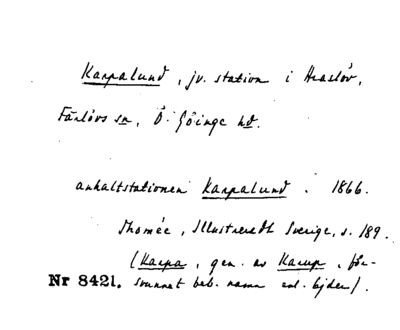 Karpalund, jv. station i Araslöv,
Färlövs sn, Ö. Göinge hd.
anhaltstationen Karpalund. 1866.
Thomée, Illustreradt Sverige, s. 189.
(Karpa, gen. av Karup, för-
Nr 8421. svunnet beb. namn enl. bjder).